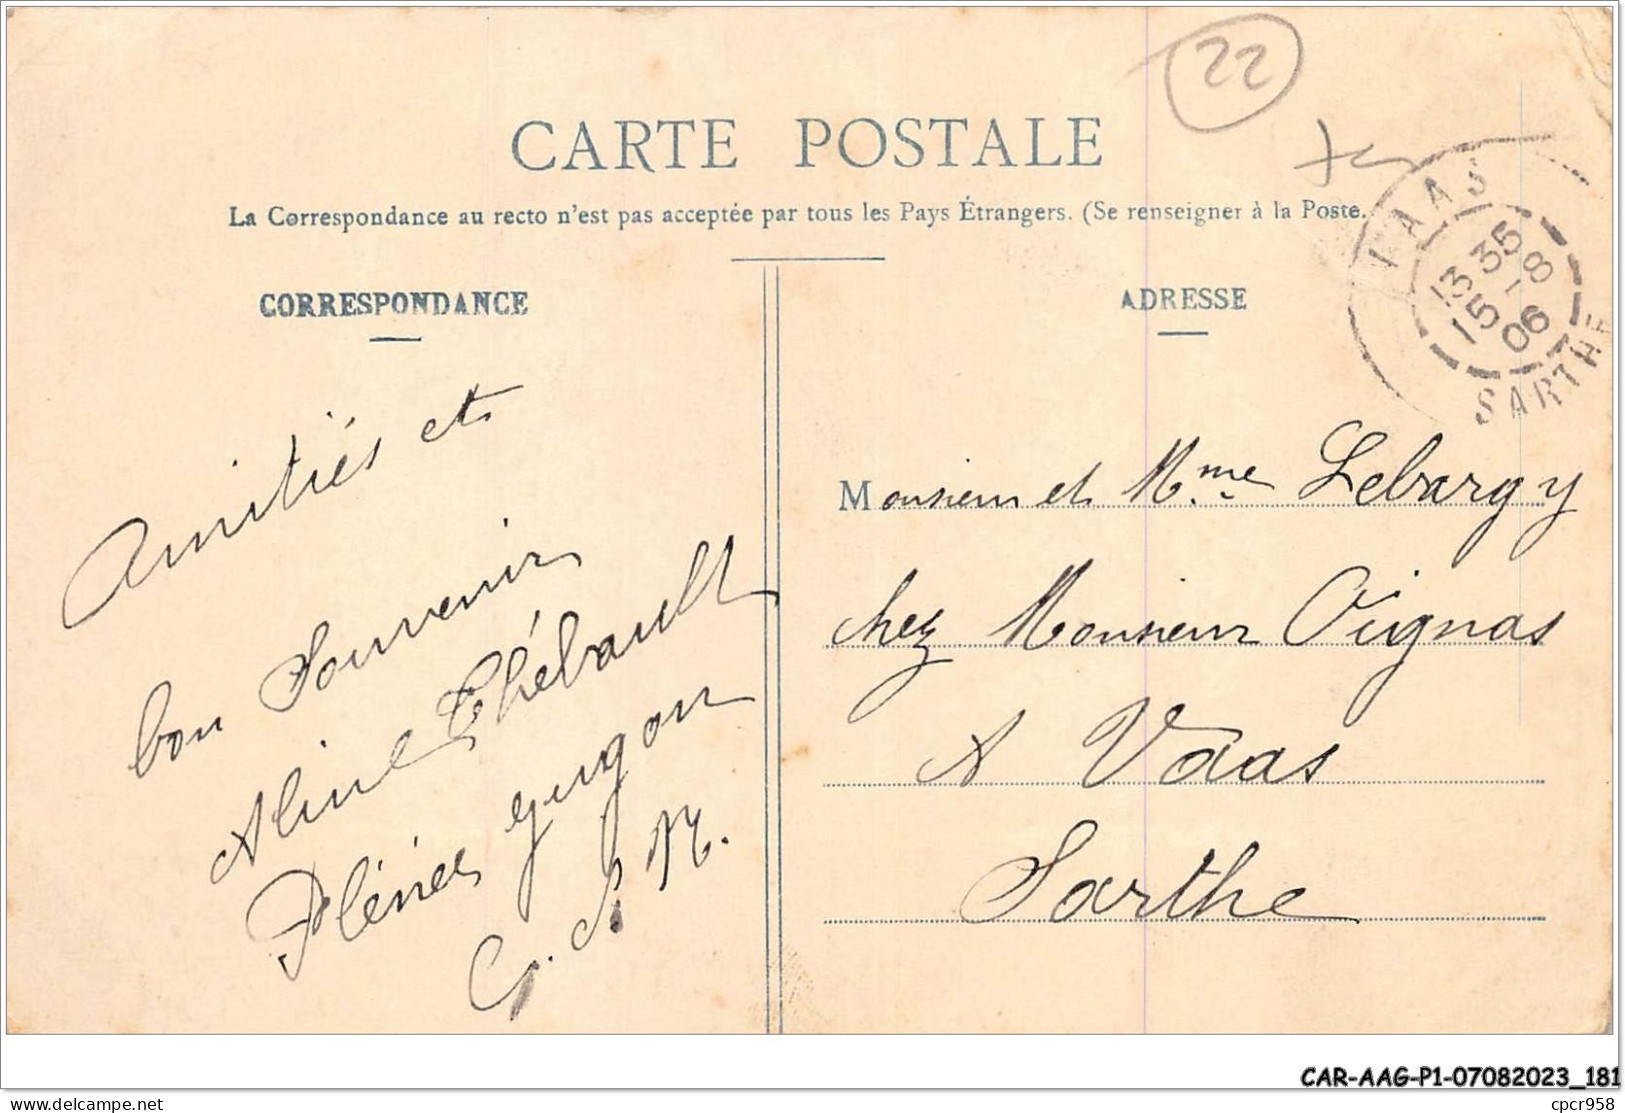 22
CARTE POSTALE
La Correspondance au recto n'est pas acceptée par tous les Pays Étrangers. (Se renseigner à la Poste.
VAAS
13 35
15 -8
06
SARTHE
CORRESPONDANCE
Amitiés et
bon Souvenir
Aline Thébault
Plénée gugon
C. d. N.
ADRESSE
Monsieur et Mme Lebargy
chez Monsieur Oignas
A Vaas
Sarthe
CAR-AAG-P1-07082023_181
delcampe.net
cpcr958